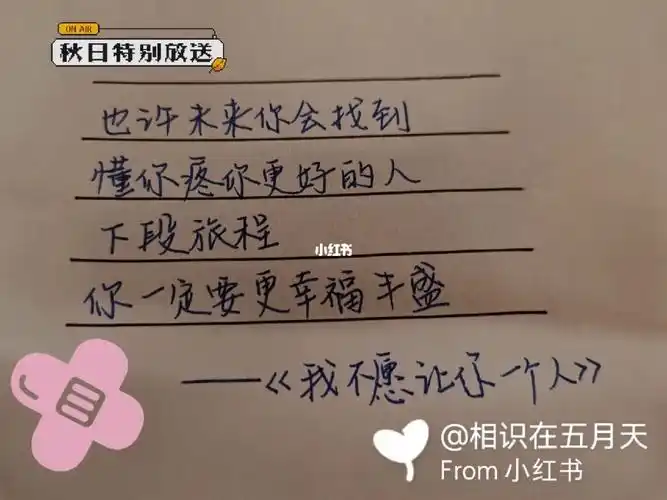 ON AIR
秋日特别放送
也许未来你会找到
懂你疼你更好的人
下段旅程
小红书
你一定要更幸福丰盛
——《我不愿让你一个人》
@相识在五月天
From 小红书